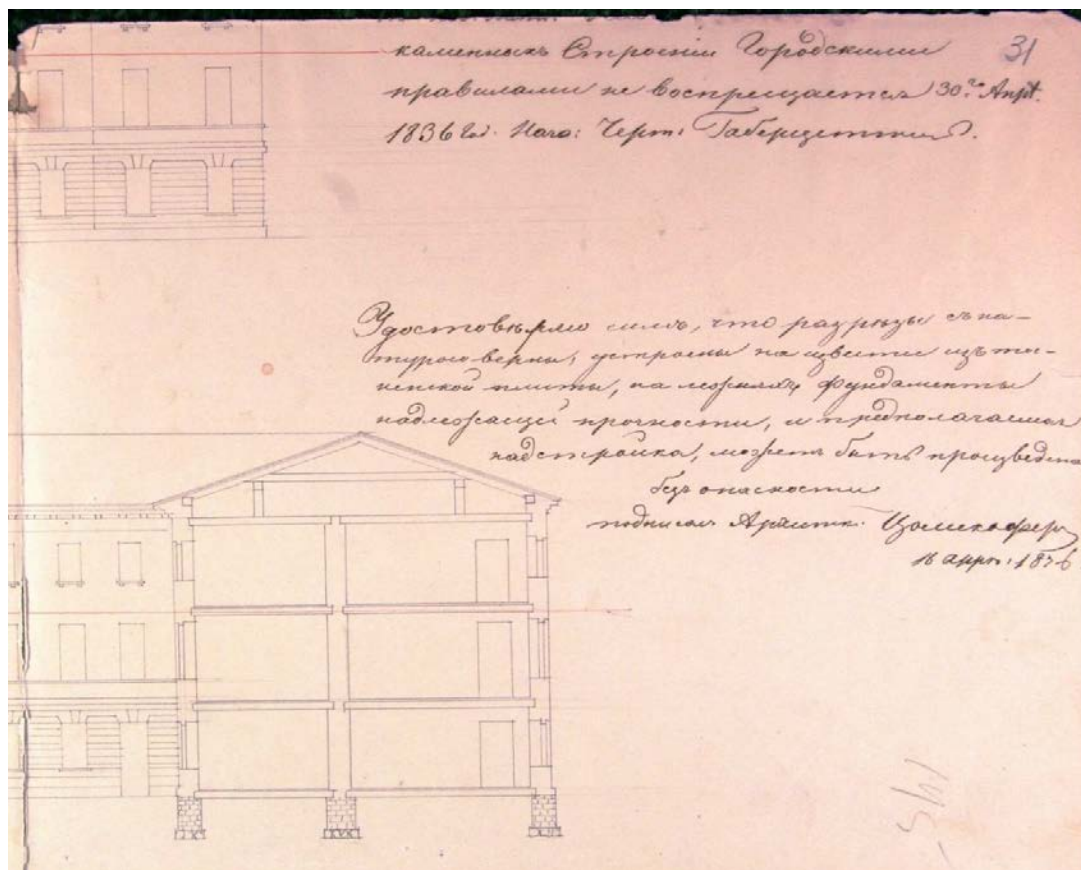 31
каменныхъ Строеній Городскими
правилами не воспрещается 30го Апрѣ.
1836 год. Нача: Черт:
Удостовѣряю симъ, что разрѣзы съ на-
турою вѣрны, устроены на извести изъ
плиты, на фундаменты
надлежащей прочности, и предполагаемая
надстройка, можетъ быть произведена
безъ опасности
подписалъ Архитек.
16 апрѣ: 1836
145